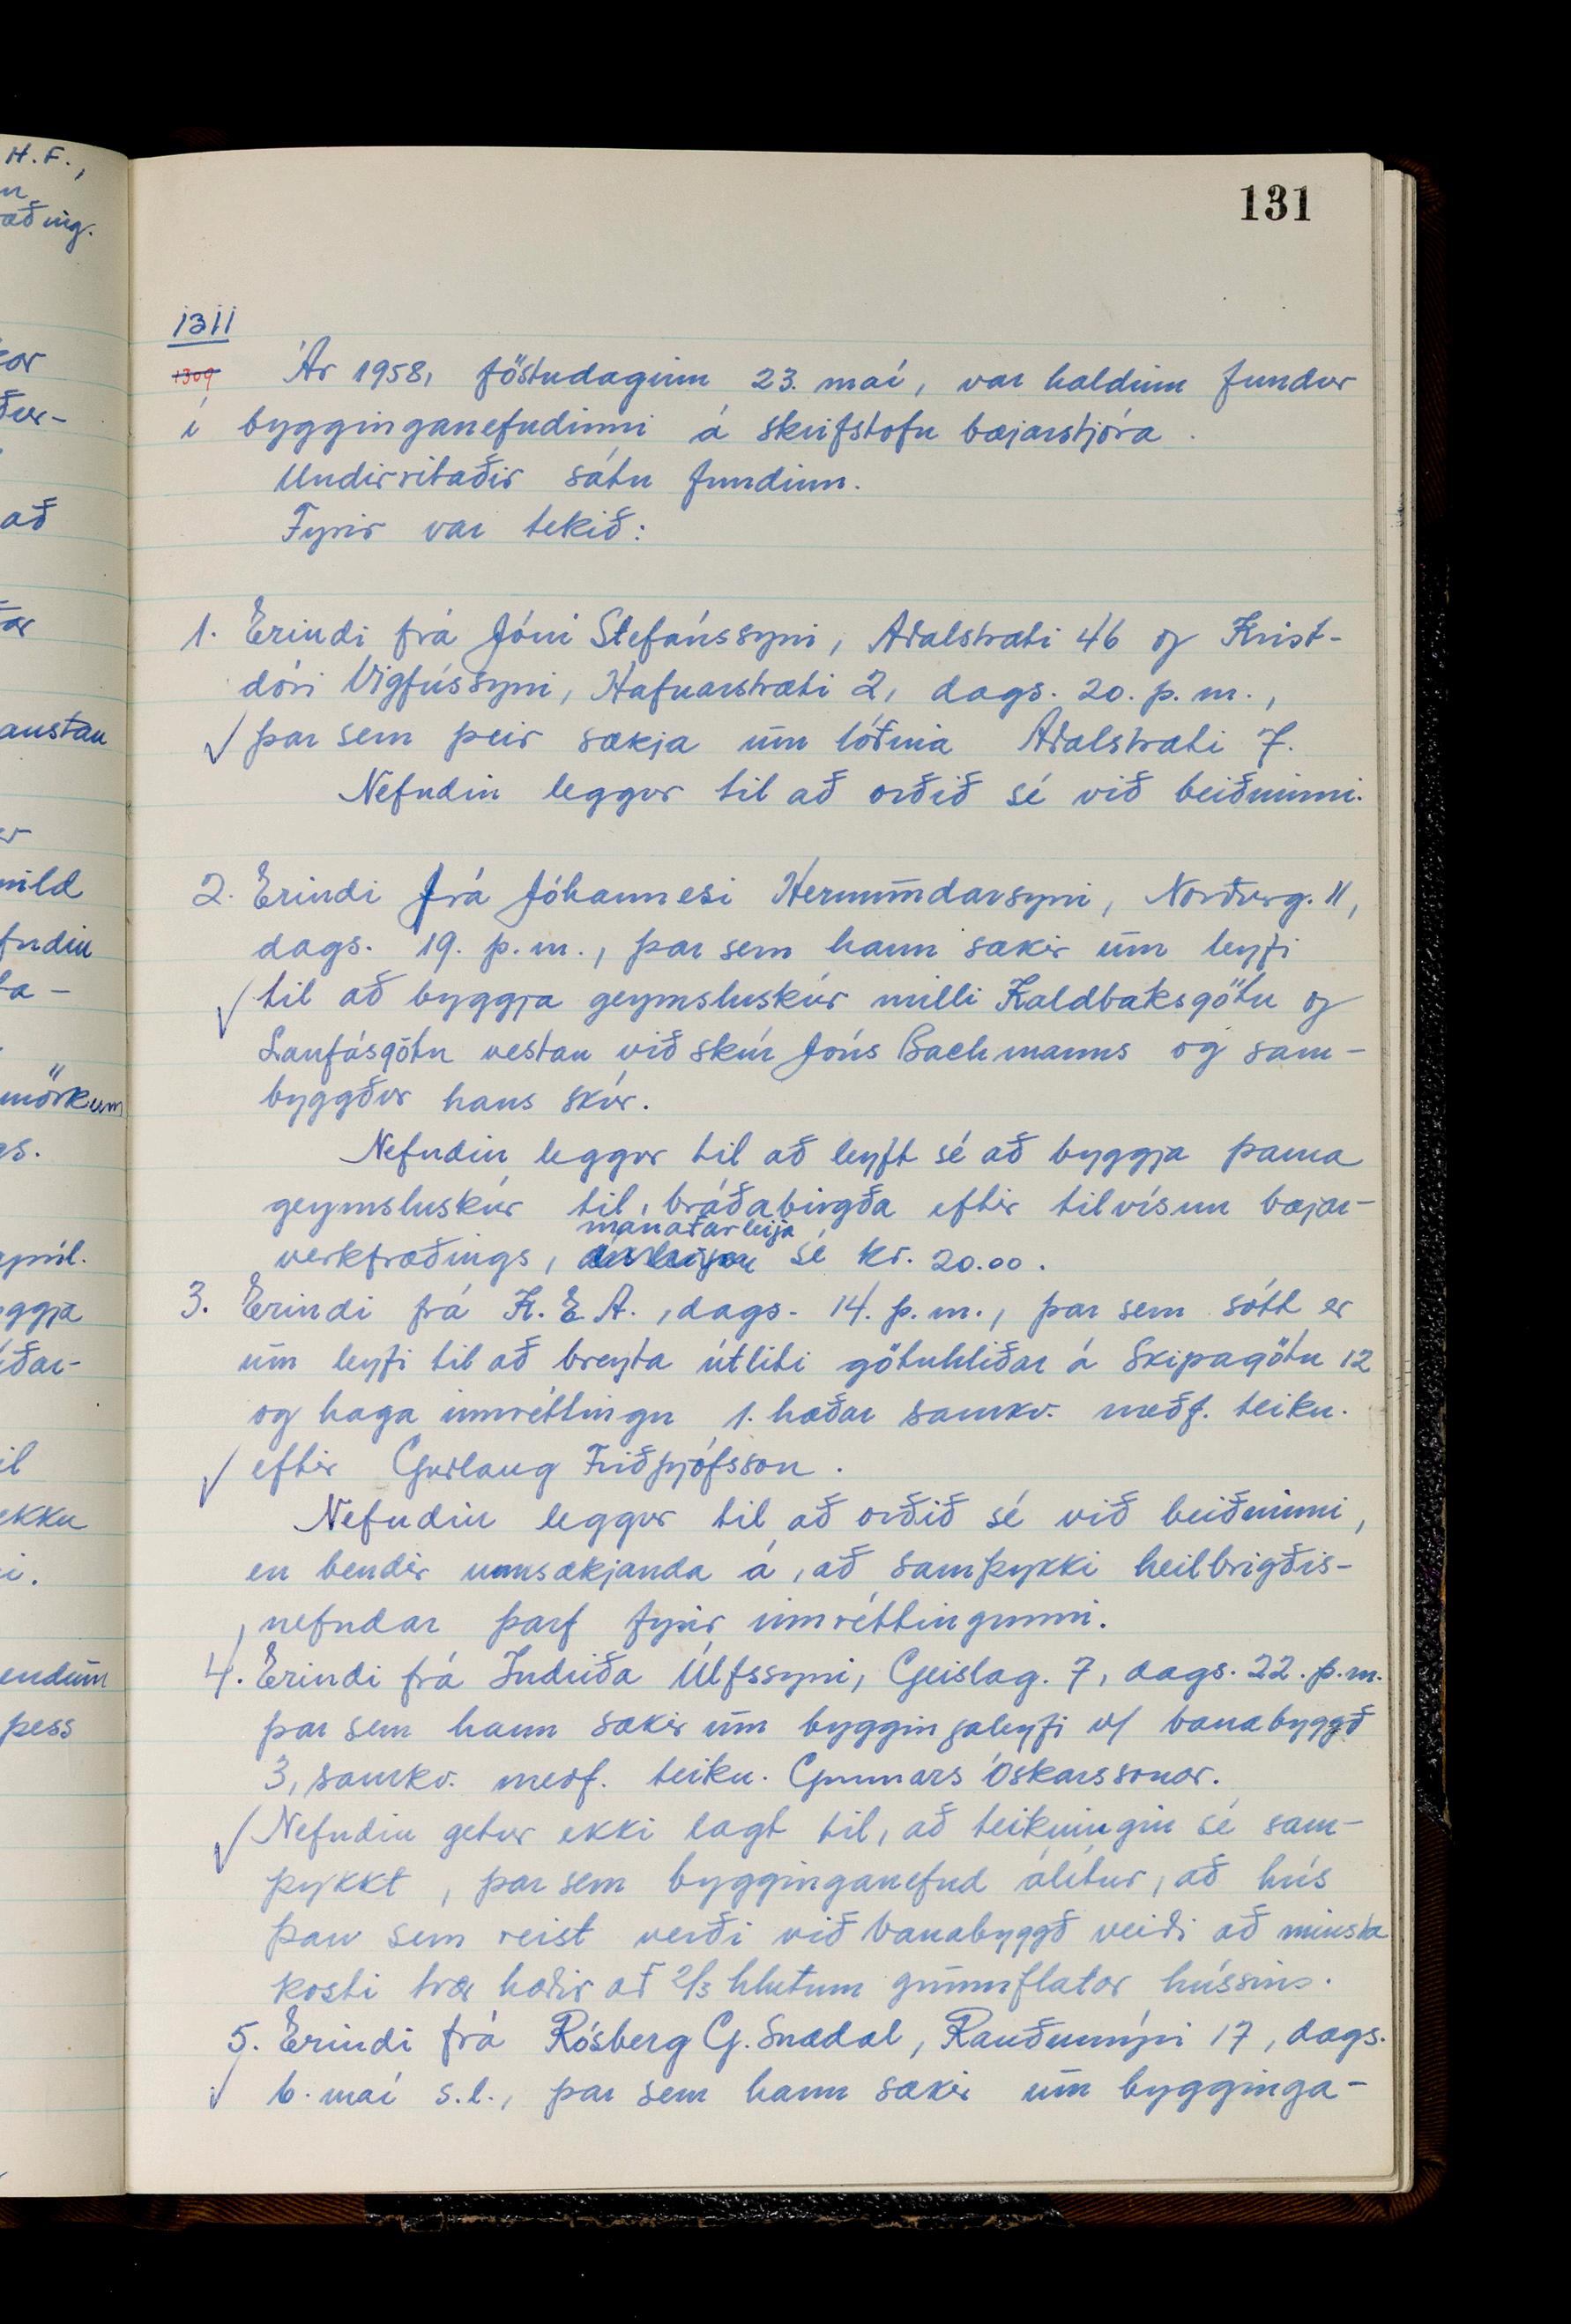 H.F.,
æðing.
austan
mörkum
apríl.
endum
þess
131
1311
1309
Ár 1958, föstudaginn 23. maí, var haldinn fundur
í bygginganefndinni á skrifstofu bæjarstjóra.
Undirritaðir sátu fundinn.
Fyrir var tekið:
1. Erindi frá Jóni Stefánssyni, Aðalstræti 46 og Krist-
dóri Vigfússyni, Hafnarstræti 2, dags. 20. þ.m.,
þar sem þeir sækja um lóðina Aðalstræti 7.
Nefndin leggur til að orðið sé við beiðninni.
2. Erindi frá Jóhannesi Hermundarsyni, Norðurg. 11,
dags. 19. þ.m., þar sem hann sækir um leyfi
til að byggja geymsluskúr milli Kaldbaksgötu og
Laufásgötu vestan við skúr Jóns Bachmanns og sam-
byggður hans skúr.
Nefndin leggur til að leyft sé að byggja þanna
geymsluskúr til bráðabirgða eftir tilvísun bæjar-
mánaðarleija
verkfræðings, sé kr. 20.00.
3. Erindi frá K.E.A., dags. 14. þ.m., þar sem sótt er
um leyfi til að breyta útliti götuhliðar á Skipagötu 12
og haga innréttingu 1. hæðar samkv. meðf. teikn.
eftir Guðlaug Friðþjófsson.
Nefndin leggur til að orðið sé við beiðninni,
en bendir umsækjanda á, að samþykki heilbrigðis-
nefndar þarf fyrir innréttingunni.
4. Erindi frá Indriða Úlfssyni, Geislag. 7, dags. 22. þ.m.
þar sem hann sækir um byggingaleyfi v/ Vanabyggð
3, samkv. meðf. teikn. Gunnars Óskarssonar.
Nefndin getur ekki lagt til, að teikningin sé sam-
þykkt, þar sem bygginganefnd álítur, að hús
þau sem reist verði við Vanabyggð verði að minsta
kosti tvær hæðir að 2/3 hlutum grunnflatar hússins.
5. Erindi frá Rósberg G. Snædal, Rauðumýri 17, dags.
6. maí s.l., þar sem hann sækir um bygginga-